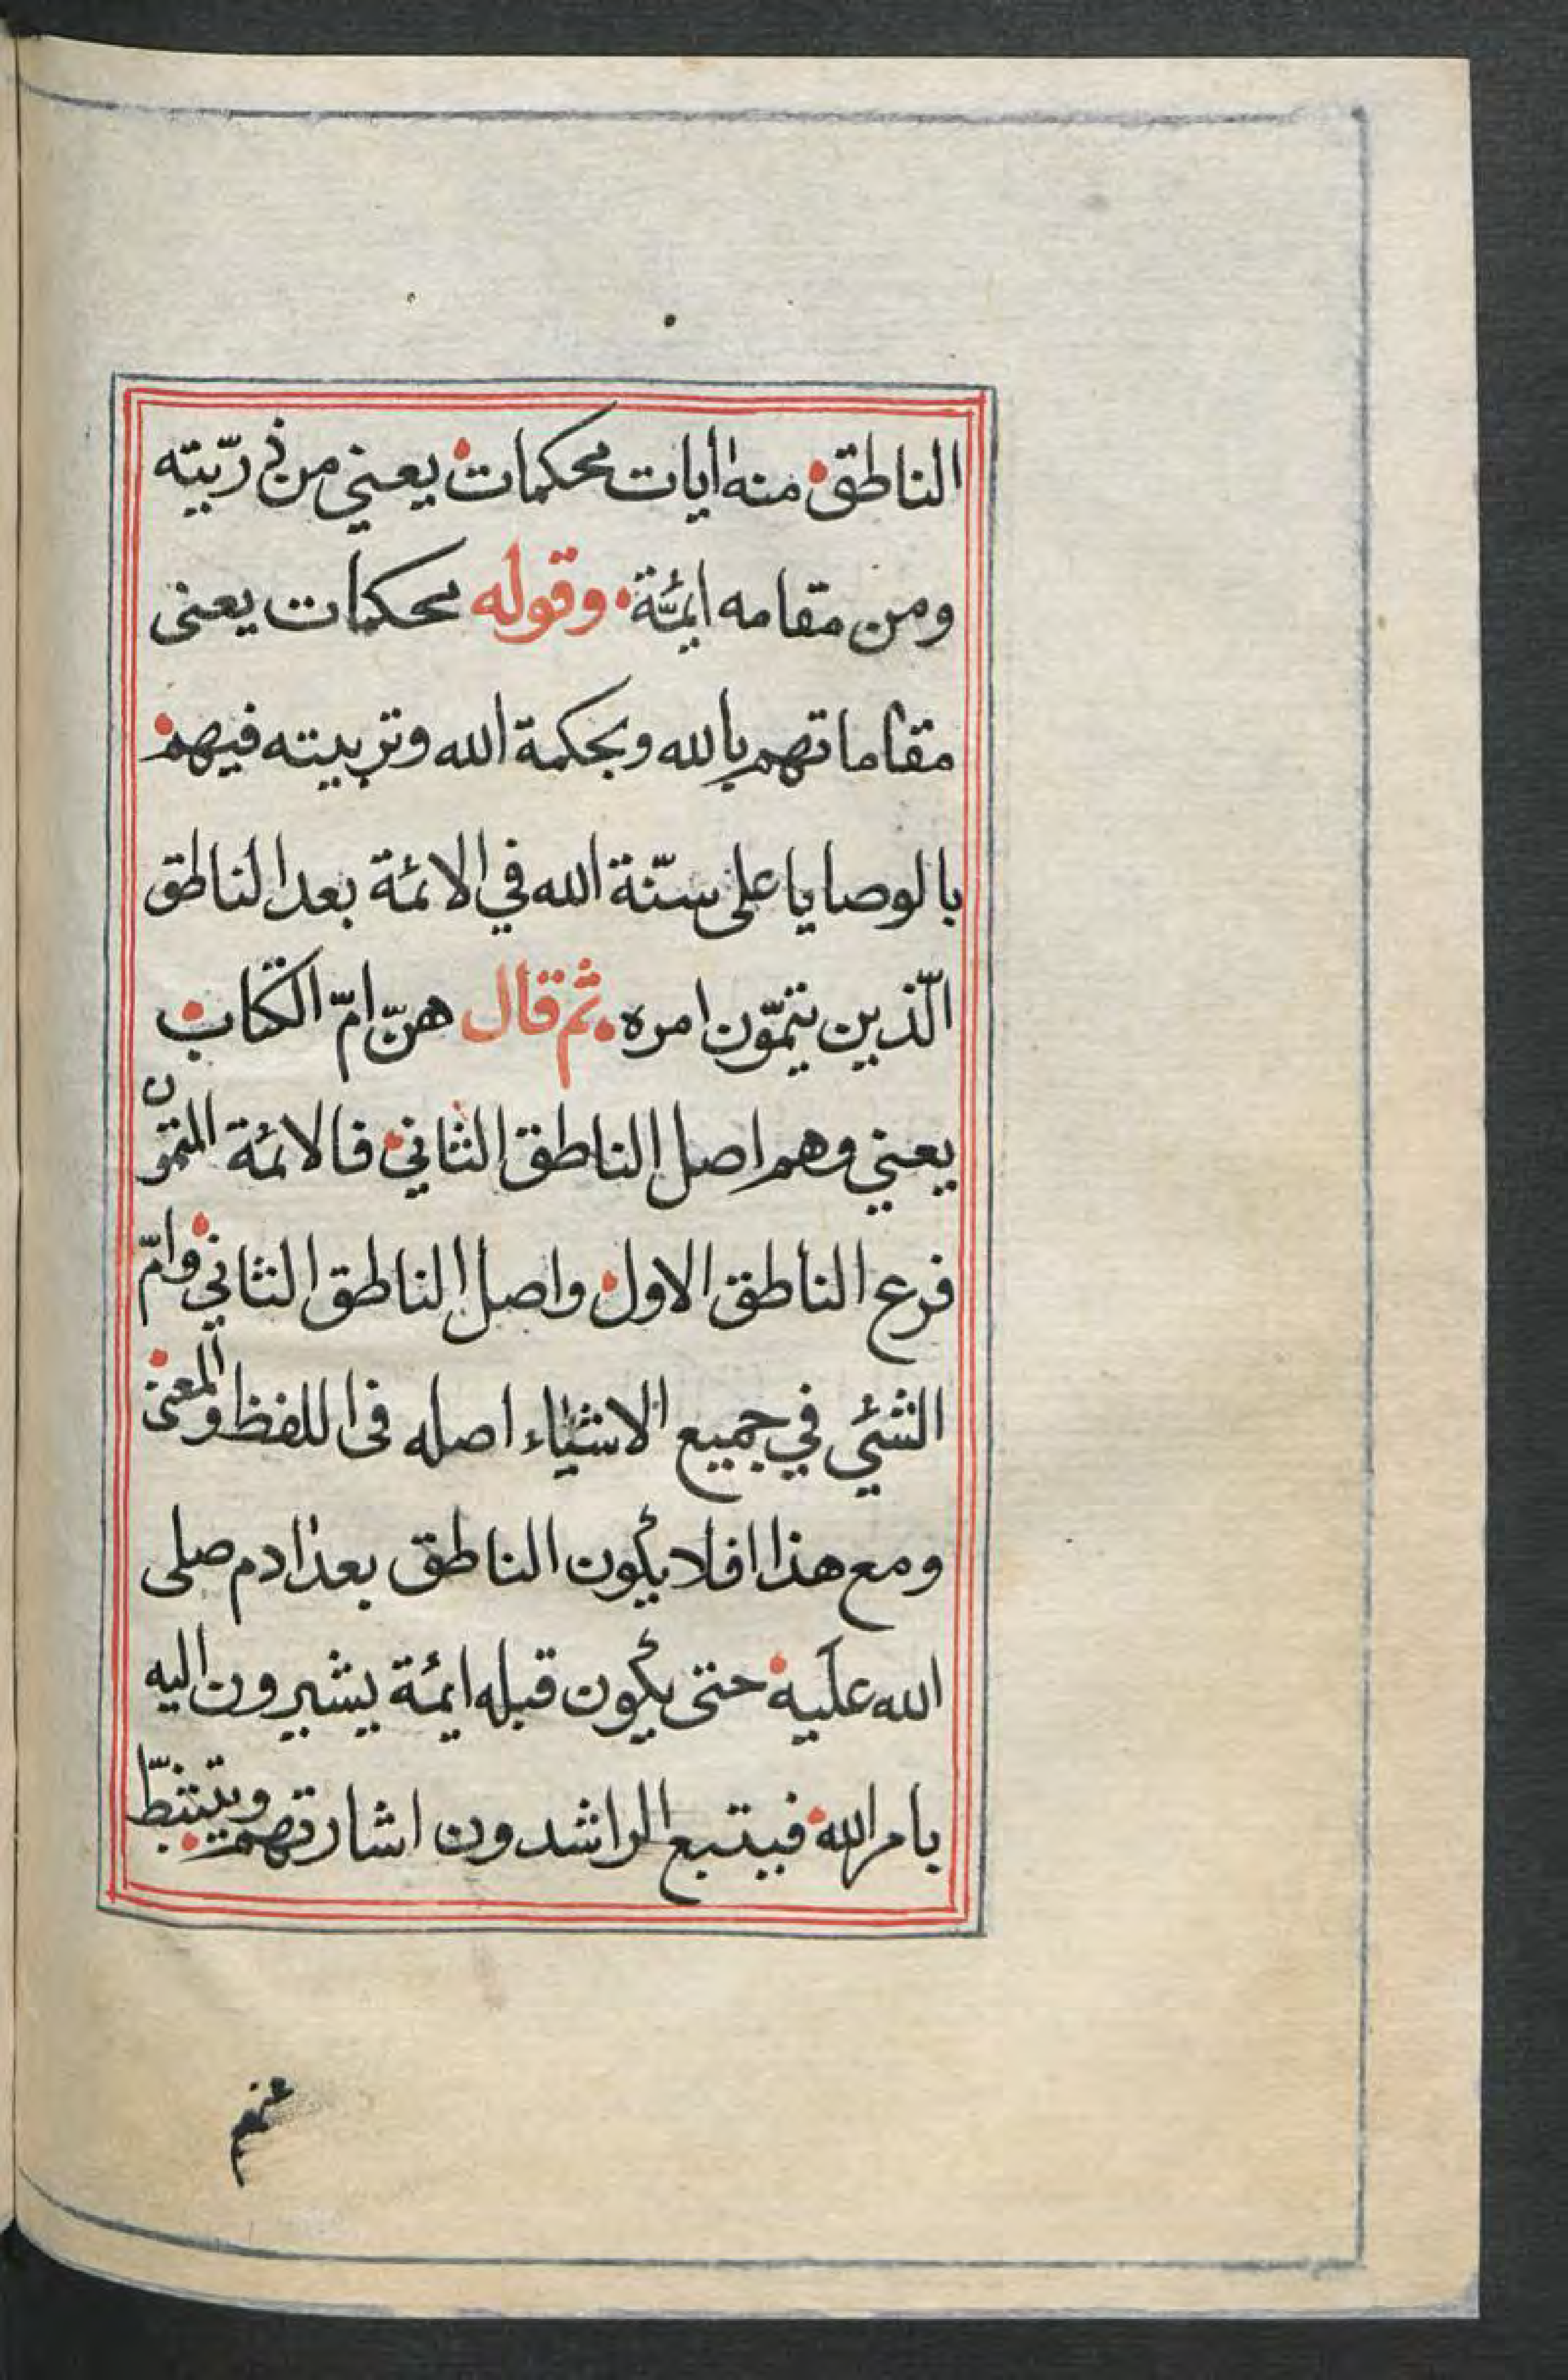 الناطق، منه ايات محكمات، يعني من ذرّيته
ومن مقامه ائمّة، وقوله محكمات يعنى
مقاماتهم بالله وبحكمة الله وتربيته فيهم،
بالوصايا على سنّة الله في الائمة بعد الناطق
الّذين يتمّون امره، ثم قال هنّ امّ الكتاب،
يعني وهم اصل الناطق الثاني، فالائمة المتمّون
فرع الناطق الاول، واصل الناطق الثاني، وامّ
الشئي في جميع الاشياء اصله فى اللفظ والمعنى،
ومع هذا افلا يكون الناطق بعد ادم صلى
الله عليه، حتى يكون قبله ائمة يشيرون اليه
بامر الله، فيتبع الراشدون اشارتهم،
عنهم